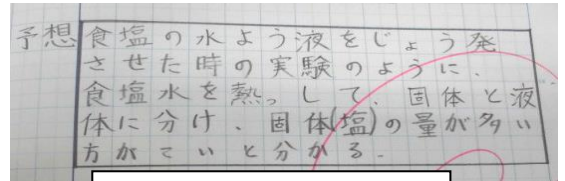 予想 食塩の水よう液をじょう発
させた時の実験のように、
食塩水を熱っして、固体と液
体に分け、固体(塩)の量が多い
方がこいと分かる。